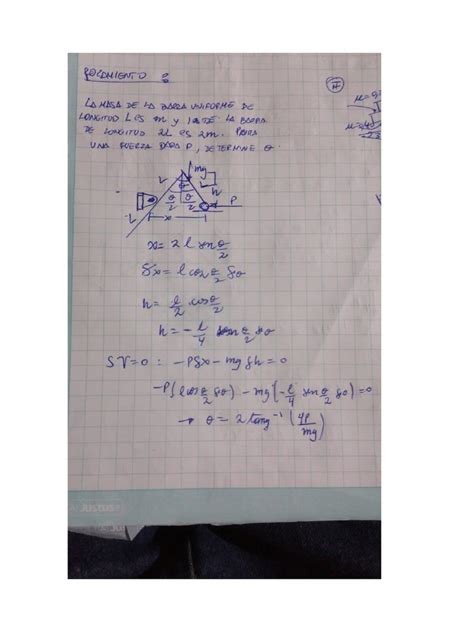 ROZAMIENTO :
LA MASA DE LA BARRA UNIFORME DE
LONGITUD L ES m y LA DE LA BARRA
DE LONGITUD 2L ES 2m. PARA
UNA FUERZA DADA P, DETERMINE θ.
mg
L
h
θ/2 θ/2
P
L
x
x = 2l sen θ/2
δx = l cos θ/2 δθ
h = l/2 cos θ/2
h = -l/4 sen θ/2 δθ
δV=0 : -Pδx - mgδh = 0
-P(l cos θ/2 δθ) - mg(-l/4 sen θ/2 δθ) = 0
→ θ = 2 tang⁻¹ (4P/mg)
JUSTUS